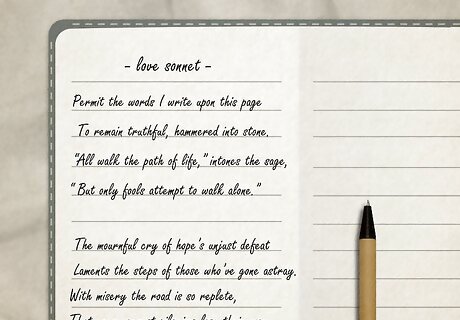 - love sonnet -
Permit the words I write upon this page
To remain truthful, hammered into stone.
"All walk the path of life," intones the sage,
"But only fools attempt to walk alone."
The mournful cry of hope's unjust defeat
Laments the steps of those who've gone astray.
With misery the road is so replete,